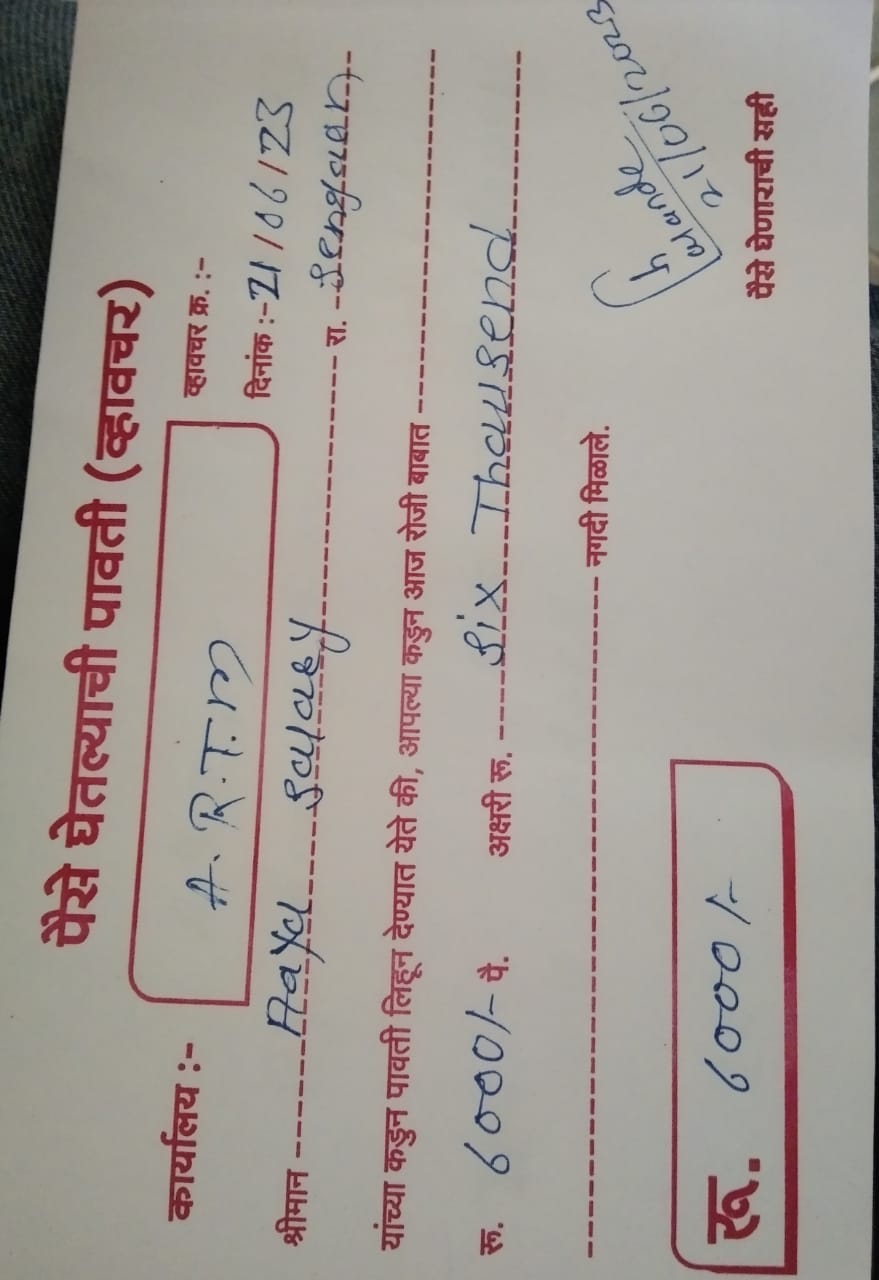 पैसे घेतल्याची पावती (व्हावचर)
कार्यालय :- A.R.T.M
व्हावचर क्र. :-
दिनांक :- 21/06/23
श्रीमान रा. Sengaon
यांच्या कडुन पावती लिहून देण्यात येते की, आपल्या कडुन आज रोजी बाबात
रू. 6000/- पै. अक्षरी रू. Six Thausend
नगदी मिळाले.
21/06/2023
रू. 6000/-
पैसे घेणाराची सही